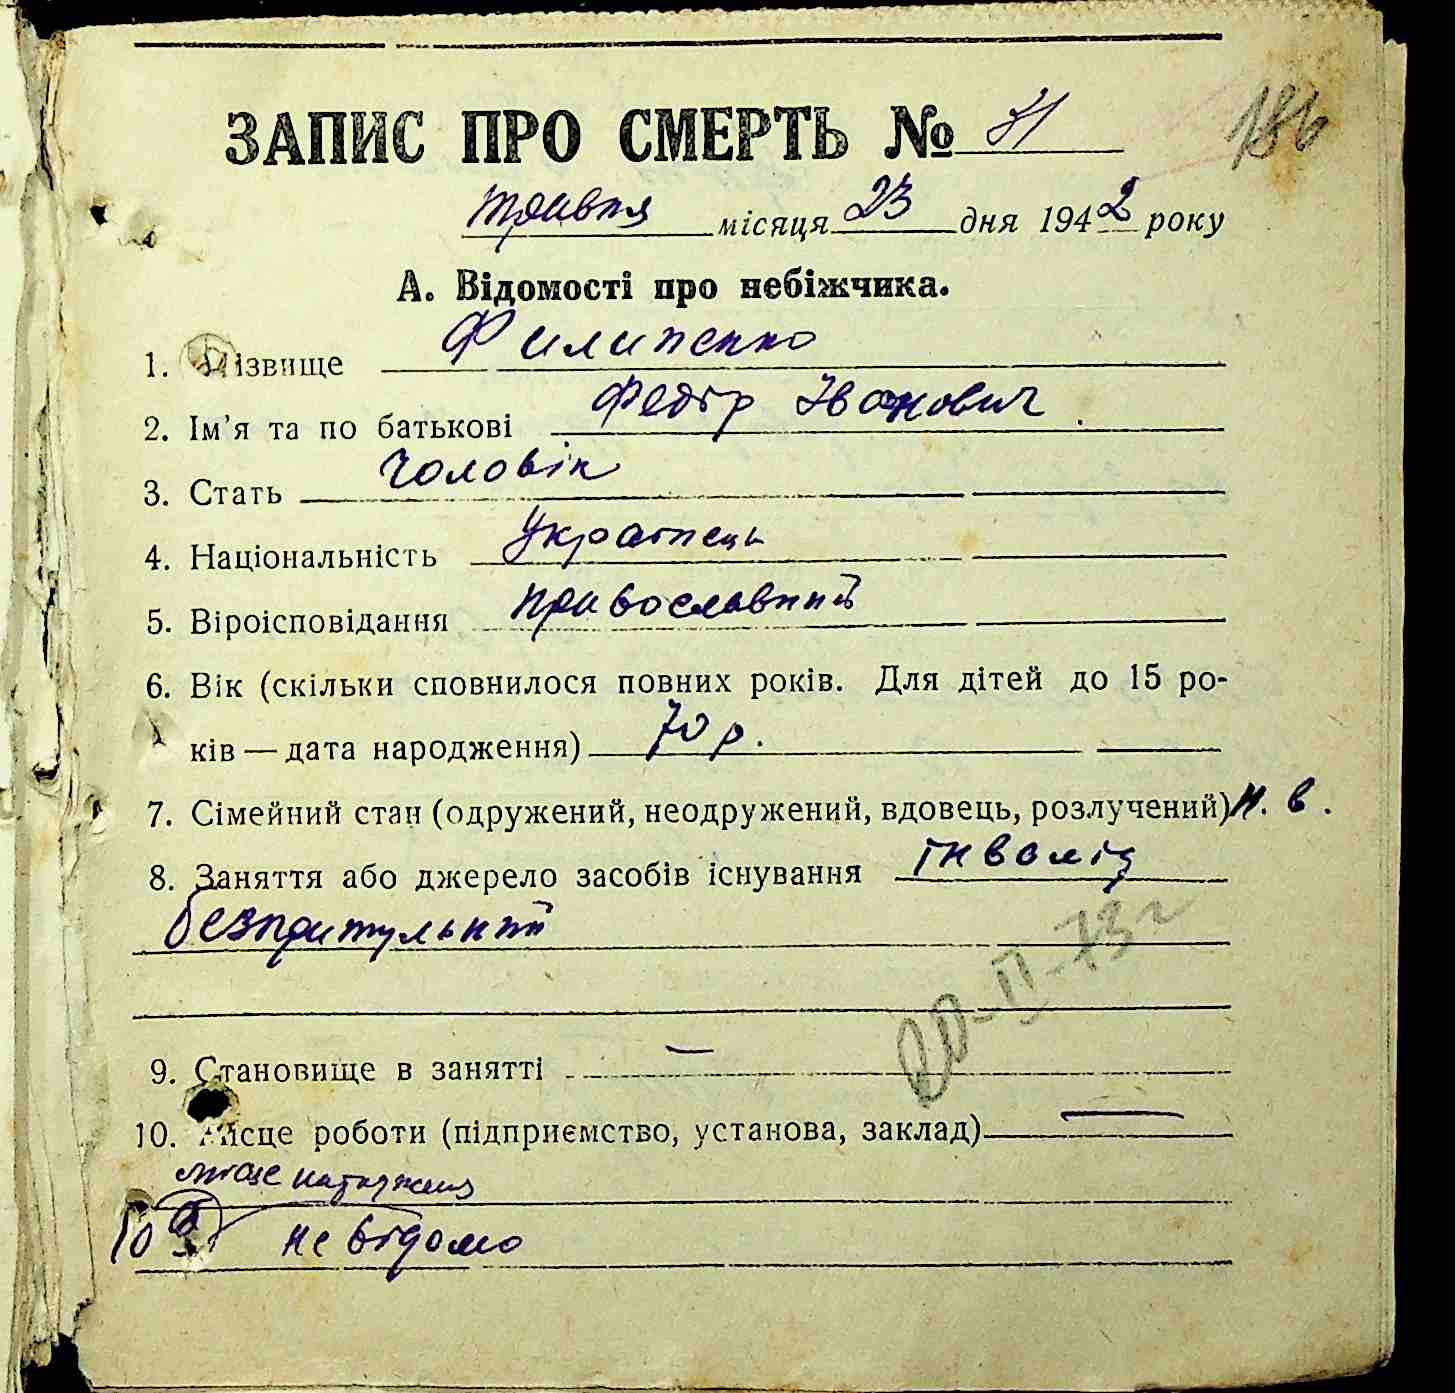 ЗАПИС ПРО СМЕРТЬ №
186
травня місяця 23 дня 1942 року
А. Відомості про небіжчика.
1. Прізвище Филипенко
2. Ім'я та по батькові Федір Іванович
3. Стать чоловік
4. Національність Українець
5. Віроісповідання православний
6. Вік (скільки сповнилося повних років. Для дітей до 15 ро-
ків — дата народження) 70 р.
7. Сімейний стан (одружений, неодружений, вдовець, розлучений) н. в.
8. Заняття або джерело засобів існування інвалід
безпритульний
20-II-73 г
9. Становище в занятті —
10. Місце роботи (підприємство, установа, заклад) —
місце народження
не відомо